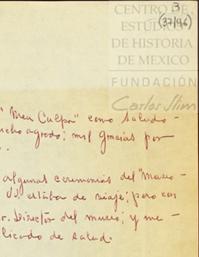 3
(37/96)
CENTRO DE
ESTUDIOS
DE HISTORIA
DE MEXICO
FUNDACIÓN
Carlos Slim
"Mea Culpa" como saludo-
mucho agrado; mil gracias por
algunas ceremonias del "Marco-
Ud. estaba de viaje; pero con
r. Director del museo; y me-
licado de salud.